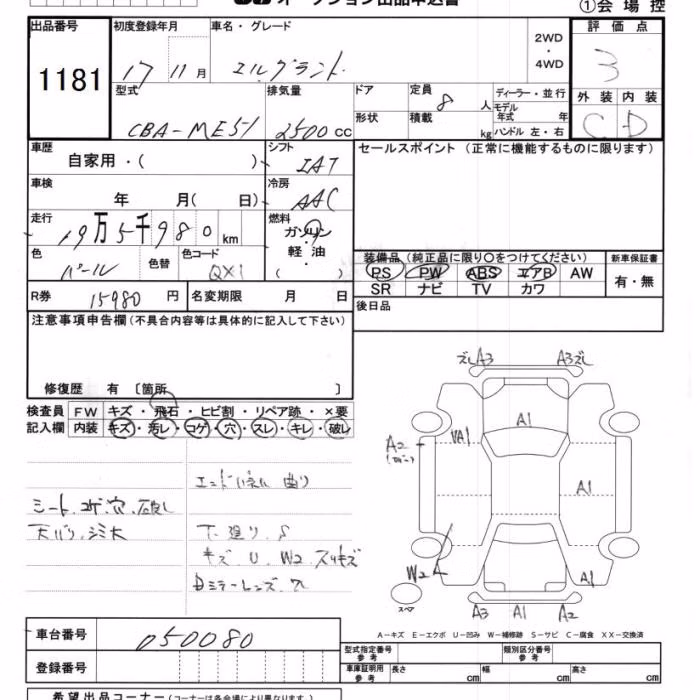 オークション出品申込書
①会場控
出品番号 初度登録年月 車名・グレード 2WD・4WD 評価点
1181 17 11月 エルグランド 3
型式 排気量 ドア 定員 8人 ディーラー・並行 外装 内装
モデル年式 年
CBA-ME51 2500cc 形状 積載 kg ハンドル 左・右 C D
車歴 シフト セールスポイント (正常に機能するものに限ります)
自家用・( ) IAT
車検 冷房
年 月( 日) AAC
走行 燃料
19万5千980km ガソリン・軽油
色 色替 色コード ( )
パール QX1
装備品 (純正品に限り○をつけてください) 新車保証書
PS PW ABS エアB AW 有・無
SR ナビ TV カワ
R券 15980円 名変期限 月 日 後日品
注意事項申告欄 (不具合内容等は具体的に記入して下さい)
修復歴 有 〔箇所 〕
検査員記入欄 FW キズ・飛石・ヒビ割・リペア跡・×要
内装 キズ・汚レ・コゲ・穴・スレ・キレ・破レ
エンドパネル 曲り
シート コゲ.穴.破レ
天バリ.シミ大
下廻り S
キズ U W2 スリキズ
ミラーレンズ
ズレA3 A3ズレ
A1
A2 VA1
A1
W2A
A1
スペア A3 A1 A2
A-キズ E-エクボ U-凹み W-補修跡 S-サビ C-腐食 XX-交換済
車台番号 050080
型式指定番号 参考 類別区分番号 参考
登録番号 車庫証明用 参考 長さ cm 幅 cm 高さ cm
希望出品コーナー (コーナーは各会場により異なります。)